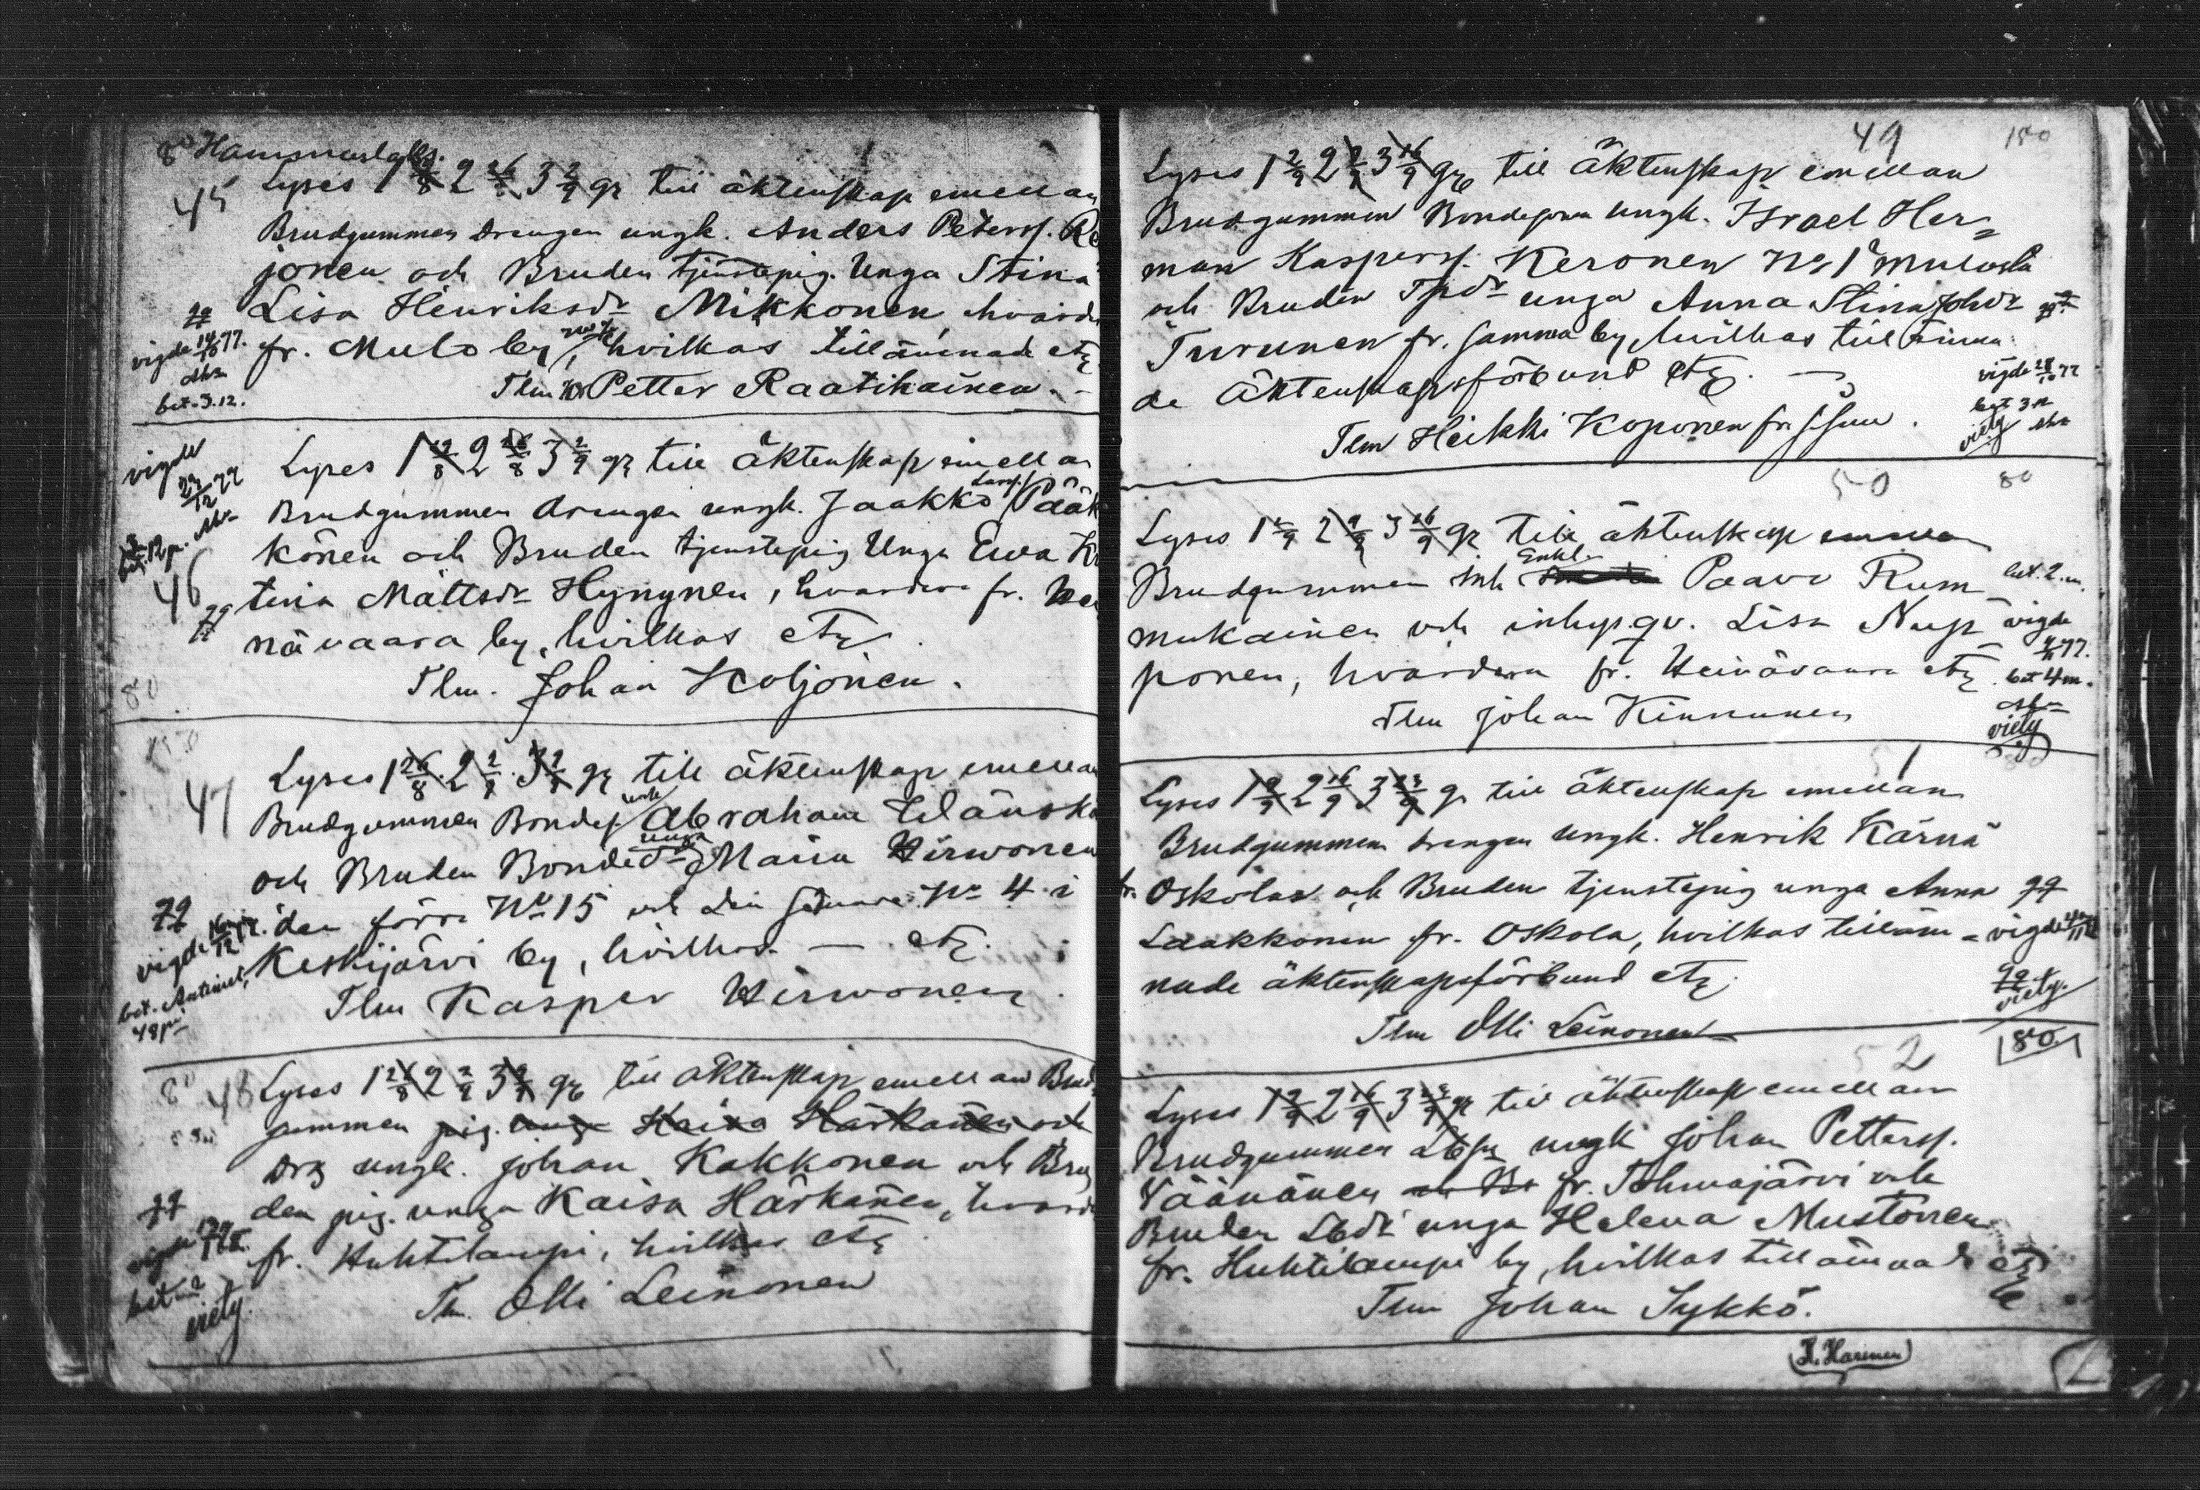 45 Lyses 1 19/8 2 26/8 3 2/9 gr till äktenskap emellan
Brudgummen Drengen ungk. Anders Peterss. Re
jonen och Bruden tjenstepig. Unga Stina
Lisa Henriksdr Mikkonen, hvardera
fr. Mulo by, hvilkas tillämnade etc
Tlm Petter Raatikainen.
77
vigde 14/10 77.
bet. 3.12.
vigde
23/12 77
46
Lyses 1 19/8 2 26/8 3 2/9 gr till äktenskap emellan
Brudgummen Drengen ungk. Jaakko Larss. Pääk
könen och Bruden tjenstepig Unga Ewa Kr
tina Mattsdr Hynynen, hvardera fr. Hei
nävaara by, hvilkas etc
Tlm. Johan Koljonen.
80
47
Lyses 1 26/8 2 2/9 3 9/9 gr till äktenskap emellan
Brudgummen Bondes. Abraham Wänskä
och Bruden Bondedr unga Maria Hirwonen
den förra No 15 och den senare No 4 i
Keskijärvi by, hvilkas — etc.
Tlm Kasper Hirwonen
77
vigde 16/12 77.
bet.
48 pi
80 48 Lyses 1 26/8 2 2/9 3 9/9 gr till äktenskap emellan Brud
gummen pig. unga Kaisa Härkänen och
Drg ungk. Johan Kakkonen och Bru
den pig. unga Kaisa Härkänen, hvard
fr. Huhtilampi, hvilkas etc
Tlm. Olli Leinonen
77
vigde
bet
viety.
49 150
Lyses 1 2/9 2 9/9 3 16/9 gr till äktenskap emellan
Brudgummen Bondeson ungk. Israel Her=
man Kasperss. Keronen No 1 Mulosta
och Bruden unga Anna Stina Johdr
Turunen fr. samma by, hvilkas tillämna
de äktenskapsförbund etc. —
Tlm Heikki Koponen fr.
vigde 28/10 77
bet 3 m
viety
50 80
Lyses 1 2/9 2 9/9 3 16/9 gr till äktenskap emellan
Brudgummen Inh Enkl. Paavo Rim
mukainen och inhysqv. Lisa Nup
ponen, hvardera fr. Heinävaara etc
Tlm Johan Kinnunen
bet. 2 m.
vigde
77.
bet 4 m.
viety
51
Lyses 1 9/9 2 16/9 3 23/9 gr till äktenskap emellan
Brudgummen Drengen Ungk. Henrik Kärnä
fr. Oskolas och Bruden tjenstepig unga Anna
Laakkonen fr. Oskola, hvilkas tilläm=
nade äktenskapsförbund etc.
Tlm Olli Leinonen
77
vigde
viety.
80.
52
Lyses 1 9/9 2 16/9 3 23/9 gr till äktenskap emellan
Brudgummen ungk Johan Petterss.
Väänänen fr. Tohmajärvi och
Bruden unga Helena Mustonen
fr. Huhtilampi by, hvilkas tillämnade etc
Tlm Johan Sykkö.